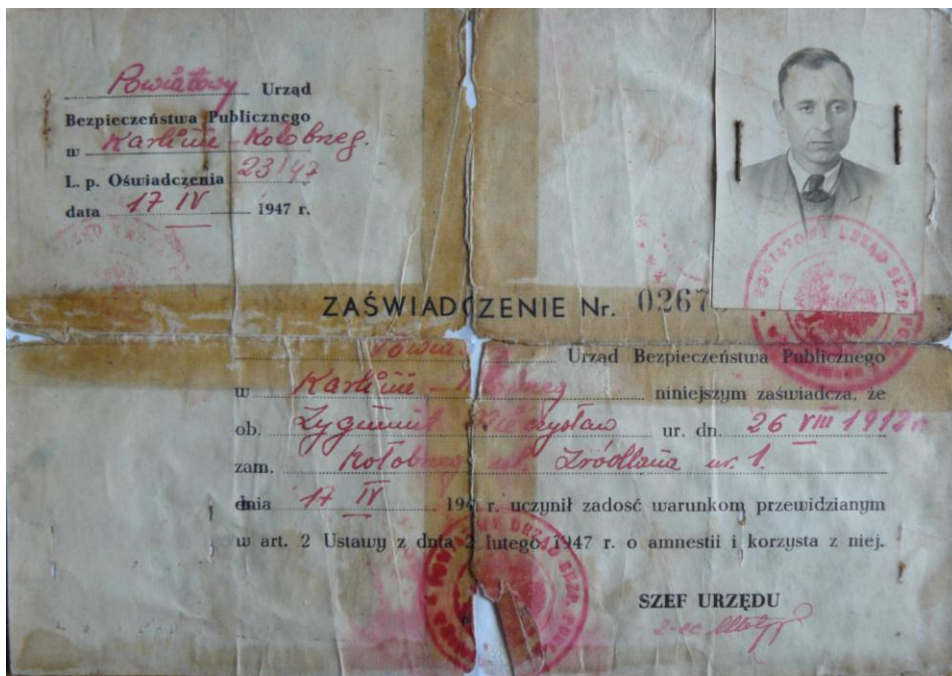 Powiatowy Urząd
Bezpieczeństwa Publicznego
w Karlinie - Kołobrzeg.
L. p. Oświadczenia 23/47
data 17 IV 1947 r.
ZAŚWIADCZENIE Nr. 0267
Urząd Bezpieczeństwa Publicznego
w Karlinie - Kołobrzeg niniejszym zaświadcza, że
ob. Zygmunt Mieczysław ur. dn. 26 VIII 1912 r.
zam. Kołobrzeg ul. Źródlana nr. 1.
dnia 17 IV 194 r. uczynił zadość warunkom przewidzianym
w art. 2 Ustawy z dnia 2 lutego 1947 r. o amnestii i korzysta z niej.
SZEF URZĘDU
POWIATOWY URZĄD BEZP. PUBL.
POWIATOWY URZĄD BEZP. PUBL.